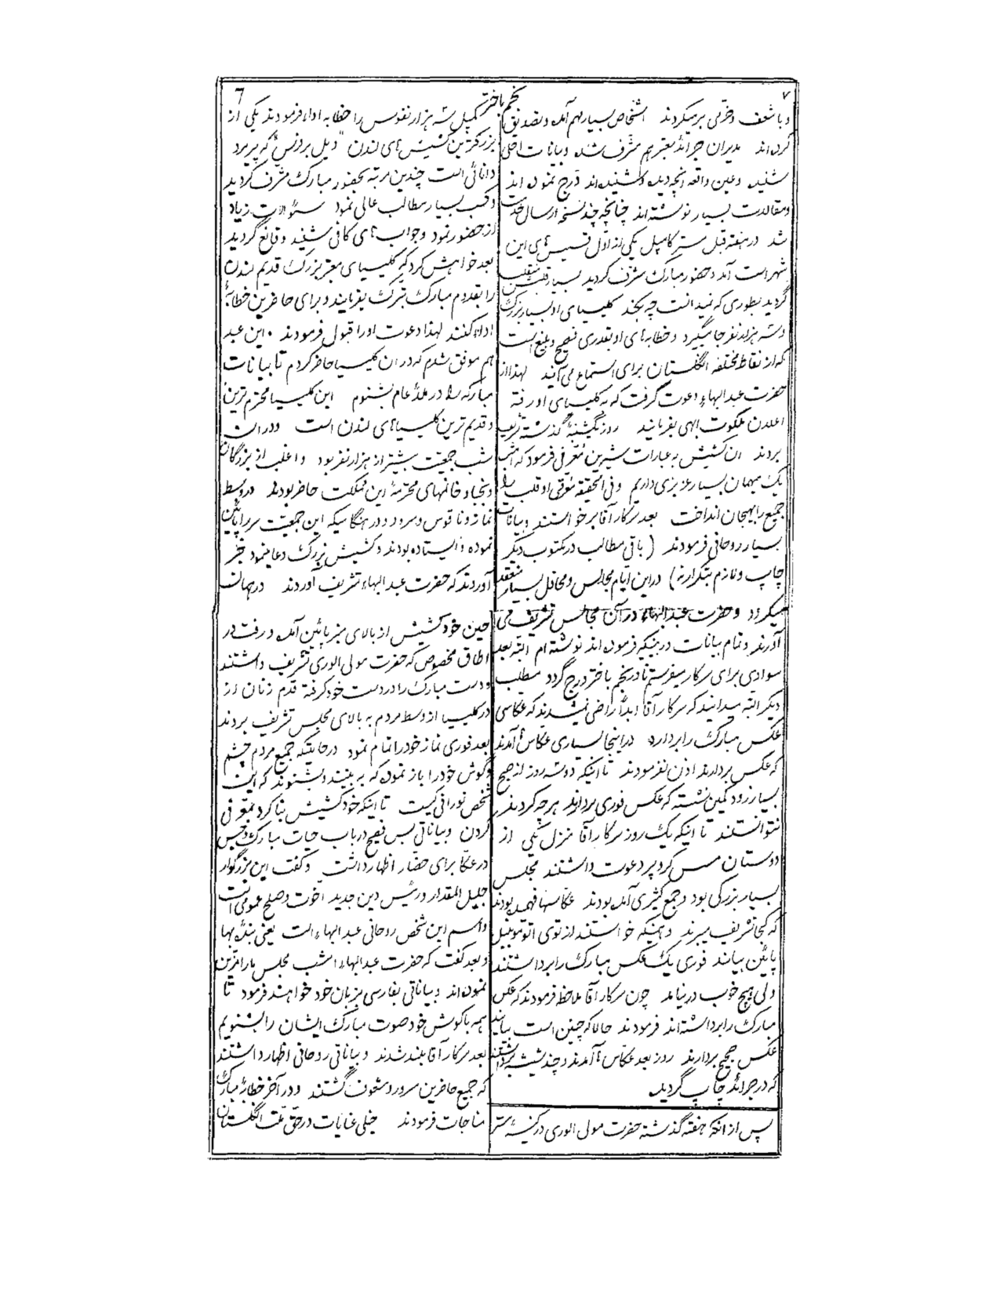 ۷
نجم باختر
7
و باشعف و خرمی برمیگردند اشخاص بسیار مهم آمده و تصدیق
کرده‌اند مدیران جرائد معتبر هم مشرف شده و بیانات احلی
شنیده و عین واقعه آنچه دیده و شنیده‌اند درج نموده اند
و مقالات بسیار نوشته‌اند چنانچه چند نسخه ارسال خدمت
شد در هفته قبل مستر کامپل یکی از اول قسیس های این
شهر است آمد و حضور مبارک مشرف گردید بسیار قلبش منقلب
گردید بطوری که نمیدانست چه بکند کلیسیای او بسیار بزرگ
و سه هزار نفر جا میگیرد و خطابه‌های او بقدری فصیح و بلیغ است
که از نقاط مختلفه انگلستان برای استماع می‌آیند لهذا از
حضرت عبدالبهاء دعوت گرفت که به کلیسیای او رفته
اعلان ملکوت الهی بفرمایند روز یکشنبهٔ گذشته تشریف
بردند آن کشیش به عبارات شیرین معرفی فرمود که امشب
یک میهمان بسیار عزیزی داریم و فی الحقیقه معرفی او قلب را
جمیع را بهیجان انداخت بعد سرکار آقا برخواستند و بیانات
بسیار روحانی فرمودند (باقی مطالب در مکتوب دیگر
چاپ و لازم بتکرار نه) در این ایام مجالس و محافل بسیار منعقد
میگردد و حضرت عبدالبهاء در آن مجالس تشریف می
آورند و تمام بیانات در جینیکه فرموده اند نوشته ام البته بعد
سوادی برای سرکار میفرستم تا در نجم باختر درج گردد مطلب
دیگر البته میدانید که سرکار آقا ابداً راضی نمیشدند که عکاسی
عکس مبارک را بردارد در اینجا بسیاری عکاس ها آمدند
که عکس بردارند اذن نفرمودند تا اینکه دو سه روز از صبح
بسیار زود کمین نشسته که عکس فوری بردارند هرچه کردند
نتوانستند تا اینکه یک روز سرکار آقا منزل یکی از
دوستان مس کروپر دعوت داشتند مجلس
بسیار بزرگی بود و جمع کثیری آمده بودند عکاسها فهمیده بودند
که کجا تشریف میبرند و همینکه خواستند از توی اتوموبیل
پائین بیایند فوری یک عکس مبارک را برداشتند
ولی هیچ خوب در نیامد چون سرکار آقا ملاحظه فرمودند که عکس
مبارک را برداشته‌اند فرمودند حالا که چنین است بیایند
عکس صحیح بردارند روز بعد عکاس ها آمدند و چند شیشه برداشتند
که در جرائد چاپ گردید
پس از آنکه هفته گذشته حضرت مولی الوری در کنیسهٔ مستر
کمپل سه هزار نفوس را خطابه ادا فرمودند یکی از
بزرکترین کشیش های لندن "ویل برفرس" که پربرد
دانائی است چندین مرتبه بحضور مبارک مشرف گردید
و کسب بسیار مطالب عالی نمود سئوالات زیاد
از حضور نمود و جواب های کافی شنید و قانع گردید
بعد خواهش کرد که کلیسیای معتبر بزرگ قدیم لندن
را بقدوم مبارک تبرک بفرمایند و برای حاضرین خطابهٔ
اداء کنند لهذا دعوت او را قبول فرمودند این عبد
هم موفق شدم که در آن کلیسیا حاضر کردم تا بیانات
مبارکه را در ملاء عام بشنوم این کلیسیا محترم ترین
و قدیم ترین کلیسیاهای لندن است و در آن
شب جمعیت بیشتر از هزار نفر بود و اغلب از بزرگان
و نجباء و خانمهای محترمهٔ این مملکت حاضر بودند در وسط
نماز و ناقوس و سرود و در هنگامیکه این جمعیت سر را پائین
نموده و ایستاده بودند و کشیش بزرگ دعا مینمود خبر
آوردند که حضرت عبدالبهاء تشریف آوردند در همان
حین خود کشیش از بالای منبر پائین آمده و رفت در
اطاق مخصوص که حضرت مولی الوری تشریف داشتند
و دست مبارک را در دست خود گرفته قدم زنان از
در کلیسیا از وسط مردم به بالای مجلس تشریف بردند
بعد فوری نماز خود را تمام نمود در حالتیکه جمیع مردم چشم
و گوش خود را باز نموده که به بینند و بشنوند که این
شخص نورانی کیست تا اینکه خود کشیش بنا کرد بمعرفی
کردن و بیاناتی بس فصیح در باب حیات مبارک و حبس
در عکا برای حضار اظهار داشت و گفت این بزرگوار
جلیل المقدار و رئیس دین جدید اخوت و صلح عمومی است
و اسم این شخص روحانی عبدالبهاء است یعنی بندهٔ بها
و بعد گفت که حضرت عبدالبهاء امشب مجلس ما را مزین
نموده‌اند و بیاناتی بفارسی بزبان خود خواهند فرمود تا
همه با گوش خود صوت مبارک ایشان را بشنویم
بعد سرکار آقا بلند شدند و بیاناتی روحانی اظهار داشتند
که جمیع حاضرین مسرور و مشعوف گشتند و در آخر خطابهٔ مبارک
مناجات فرمودند خیلی عنایات در حق ملت انگلستان